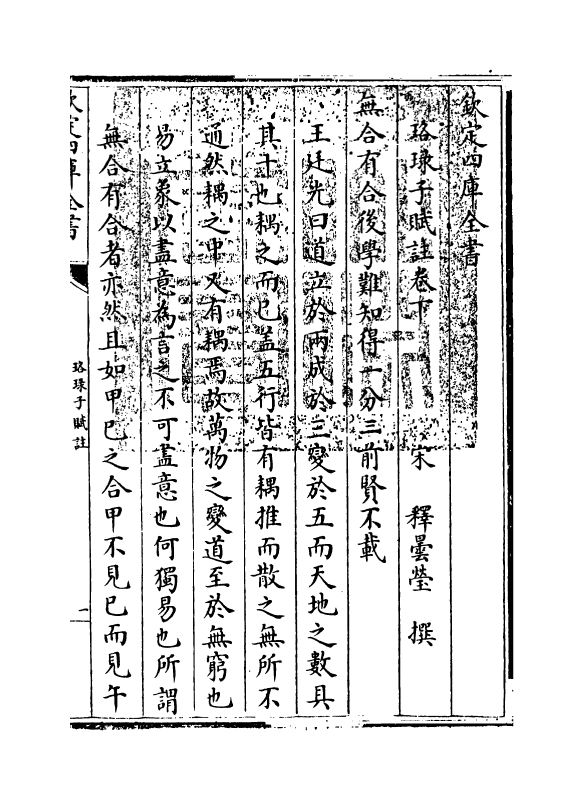 欽定四庫全書
珞琭子賦註卷下　宋　釋曇瑩　撰
無合有合後學難知得一分三前賢不載
王廷光曰道立於兩成於三變於五而天地之數具
其十也耦之而已蓋五行皆有耦推而散之無所不
通然耦之中又有耦焉故萬物之變道至於無窮也
易立象以盡意為言之不可盡意也何獨易也所謂
無合有合者亦然且如甲巳之合甲不見巳而見午
欽定四庫全書
珞琭子賦註
一